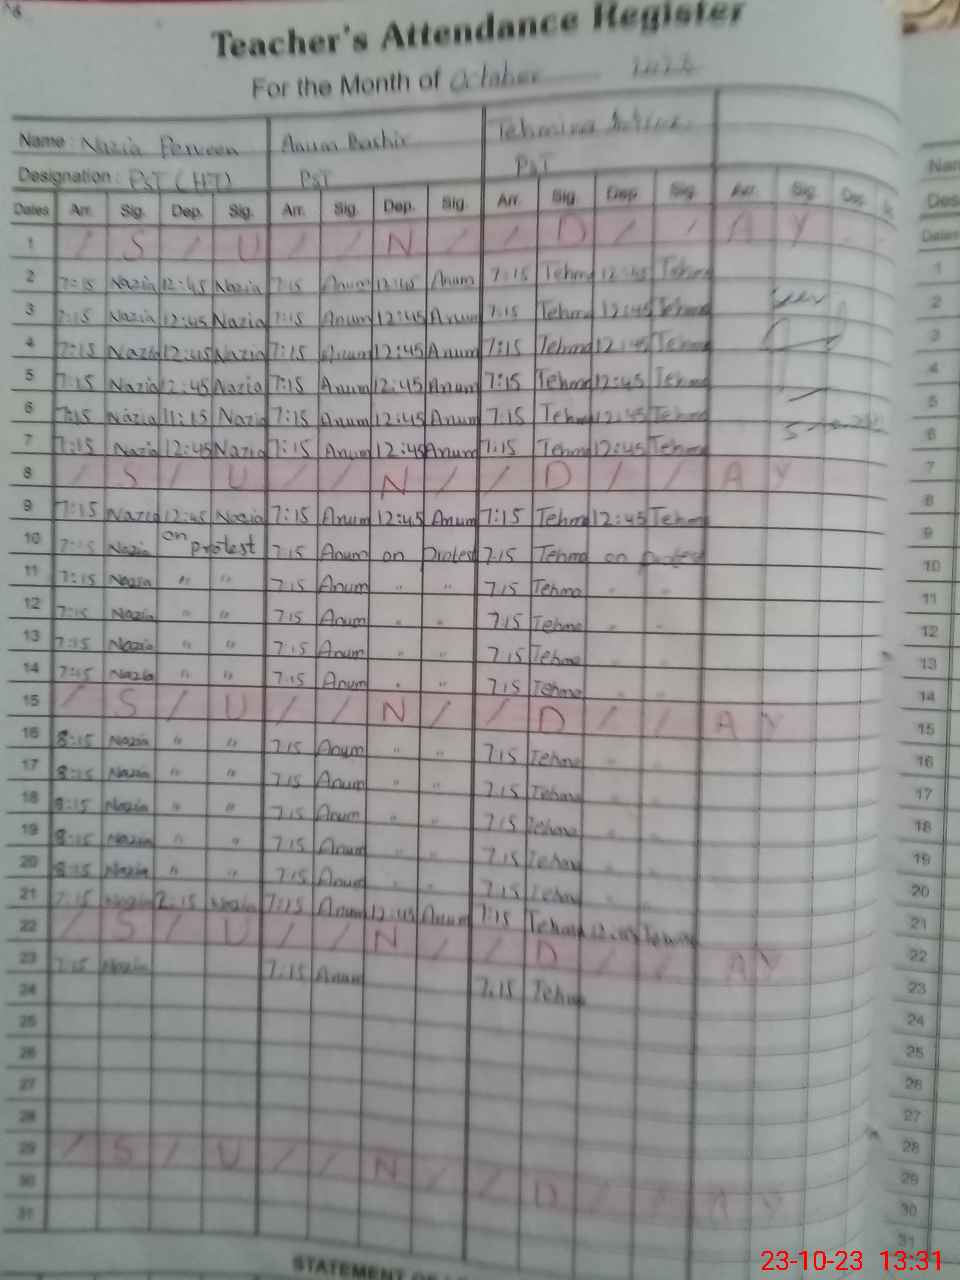 Teacher's Attendance Register
For the Month of October
Name : Nazia Perveen Anum Bashir Tehmina
Designation : PST (HT) PST PST
Dates Arr. Sig. Dep. Sig. Arr. Sig. Dep. Sig. Arr. Sig. Dep. Sig. Arr. Sig. Dep.
1 / S / U / / N / / D / / A Y
2 7:15 Nazia 12:45 Nazia 7:15 Anum 12:45 Anum 7:15 Tehmo 12:45 Tehmo
3 7:15 Nazia 12:45 Nazia 7:15 Anum 12:45 Anum 7:15 Tehmo 12:45 Tehmo
4 7:15 Nazia 12:45 Nazia 7:15 Anum 12:45 Anum 7:15 Tehmo 12:45 Tehmo
5 7:15 Nazia 12:45 Nazia 7:15 Anum 12:45 Anum 7:15 Tehmo 12:45 Tehmo
6 7:15 Nazia 11:15 Nazia 7:15 Anum 12:45 Anum 7:15 Tehmo 12:45 Tehmo
7 7:15 Nazia 12:45 Nazia 7:15 Anum 12:45 Anum 7:15 Tehmo 12:45 Tehmo
8 / S / U / / N / / D / / A Y
9 7:15 Nazia 12:45 Nazia 7:15 Anum 12:45 Anum 7:15 Tehmo 12:45 Tehmo
10 7:15 Nazia on protest 7:15 Anum on Protest 7:15 Tehmo on protest
11 7:15 Nazia " " 7:15 Anum " " 7:15 Tehmo " "
12 7:15 Nazia " " 7:15 Anum " " 7:15 Tehmo " "
13 7:15 Nazia " " 7:15 Anum " " 7:15 Tehmo " "
14 7:15 Nazia " " 7:15 Anum " " 7:15 Tehmo " "
15 / S / U / / N / / D / / A Y
16 8:15 Nazia " " 7:15 Anum " " 7:15 Tehmo " "
17 8:15 Nazia " " 7:15 Anum " " 7:15 Tehmo " "
18 8:15 Nazia " " 7:15 Anum " " 7:15 Tehmo " "
19 8:15 Nazia " " 7:15 Anum " " 7:15 Tehmo " "
20 8:15 Nazia " " 7:15 Anum " " 7:15 Tehmo " "
21 7:15 Nazia 2:15 Nazia 7:15 Anum 12:45 Anum 7:15 Tehmo 12:45 Tehmo
22 / S / U / / N / / D / / A Y
23 7:15 Nazia 7:15 Anum 7:15 Tehmo
24
25
26
27
28
29 / S / U / / N / / D / / A Y
30
31
STATEMENT OF
Dates
1
2
3
4
5
6
7
8
9
10
11
12
13
14
15
16
17
18
19
20
21
22
23
24
25
26
27
28
29
30
31
23-10-23 13:31